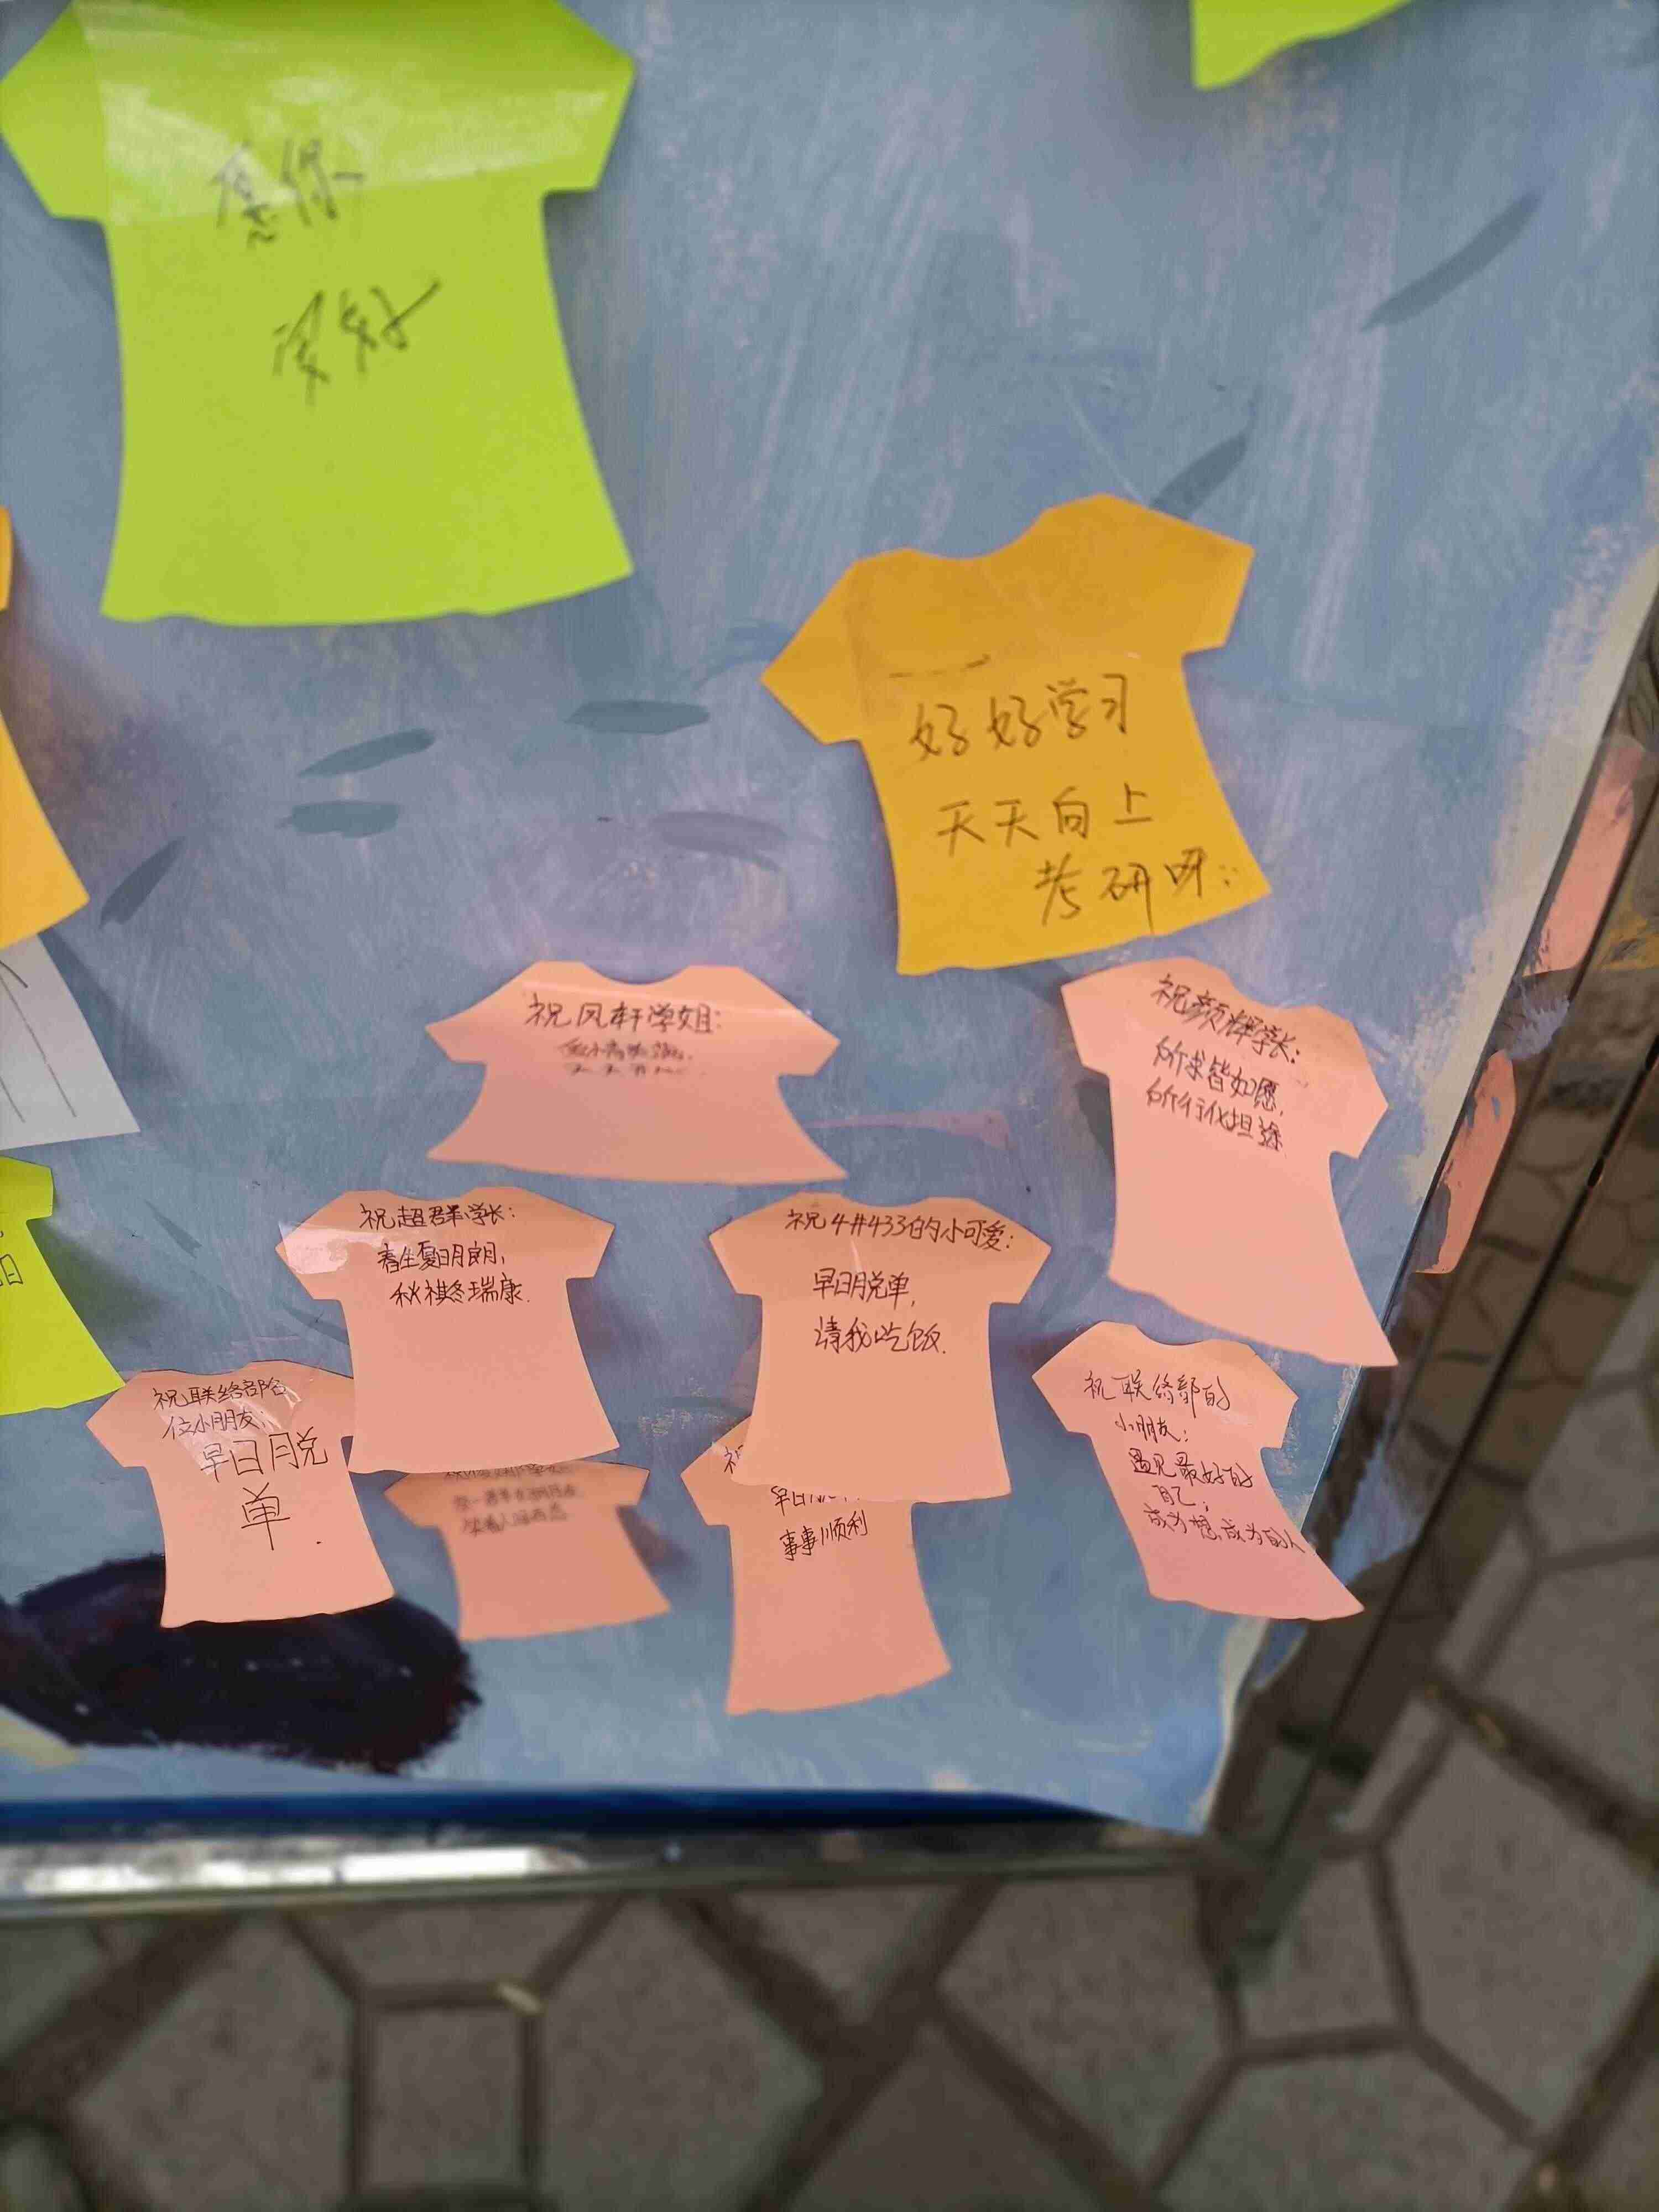 愿你
安好
好好学习
天天向上
考研呀
祝凤轩学姐:
祝颜辉学长:
所求皆如愿,
所行化坦途
祝超群学长:
春生夏明朗,
秋祺冬瑞康.
祝4#433的小可爱:
早日脱单,
请我吃饭.
祝联络部各
位小朋友:
早日脱
单.
祝
早日
事事顺利
祝联络部的
小朋友:
遇见最好的
自己,
成为想成为的人